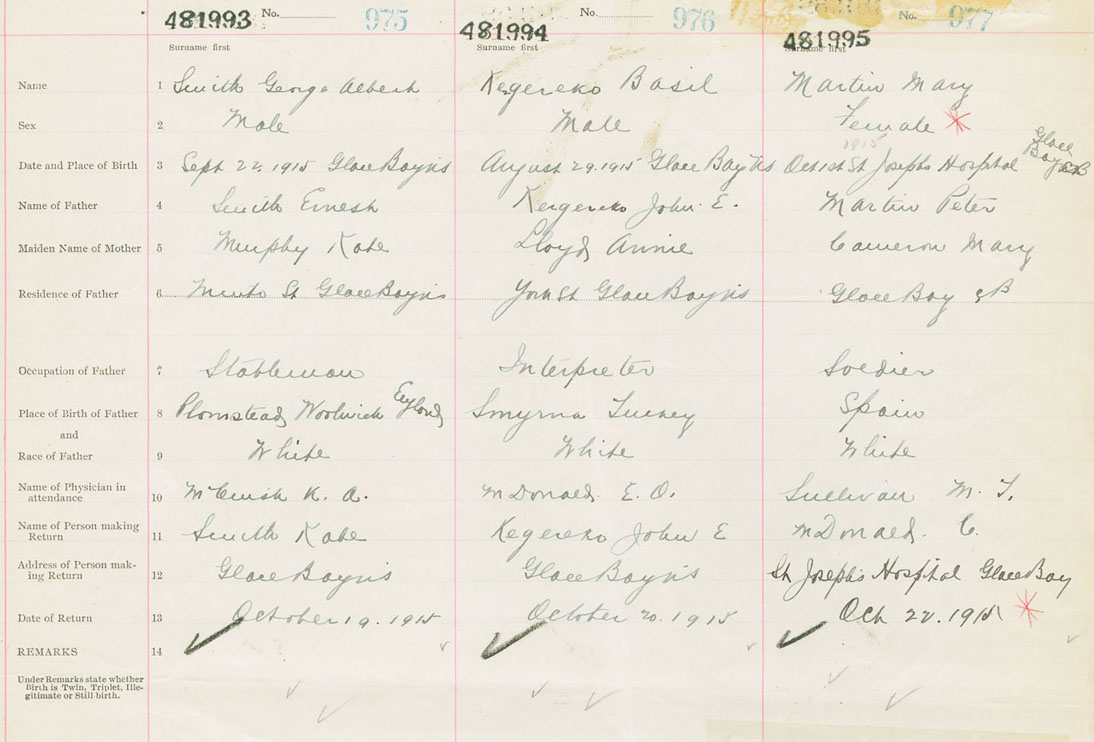 481993 No. 975 481994 No. 976 481995 No. 977
Surname first Surname first Surname first
Name 1 Smith George Albert Kegereko Basil Martin Mary
Sex 2 Male Male Female *
Date and Place of Birth 3 Sept 22. 1915 Glace Bay NS August 29. 1915 Glace Bay NS Oct 1st 1915 St Josephs Hospital Glace Bay CB
Name of Father 4 Smith Ernest Kegereko John E. Martin Peter
Maiden Name of Mother 5 Murphy Kate Lloyd Annie Cameron Mary
Residence of Father 6 Minto St Glace Bay NS York St Glace Bay NS Glace Bay CB
Occupation of Father 7 Stableman Interpreter Soldier
Place of Birth of Father 8 Plomstead Woolwich England Smyrna Turkey Spain
and
Race of Father 9 White White White
Name of Physician in
attendance 10 McCuish K. A. McDonald. E. O. Sullivan M. T.
Name of Person making
Return 11 Smith Kate Kegereko John E McDonald. C.
Address of Person mak-
ing Return 12 Glace Bay NS Glace Bay NS St Josephs Hospital Glace Bay
Date of Return 13 October 19. 1915 October 20. 1915 Oct 22. 1915 *
REMARKS 14
Under Remarks state whether
Birth is Twin, Triplet, Ille-
gitimate or Still-birth.